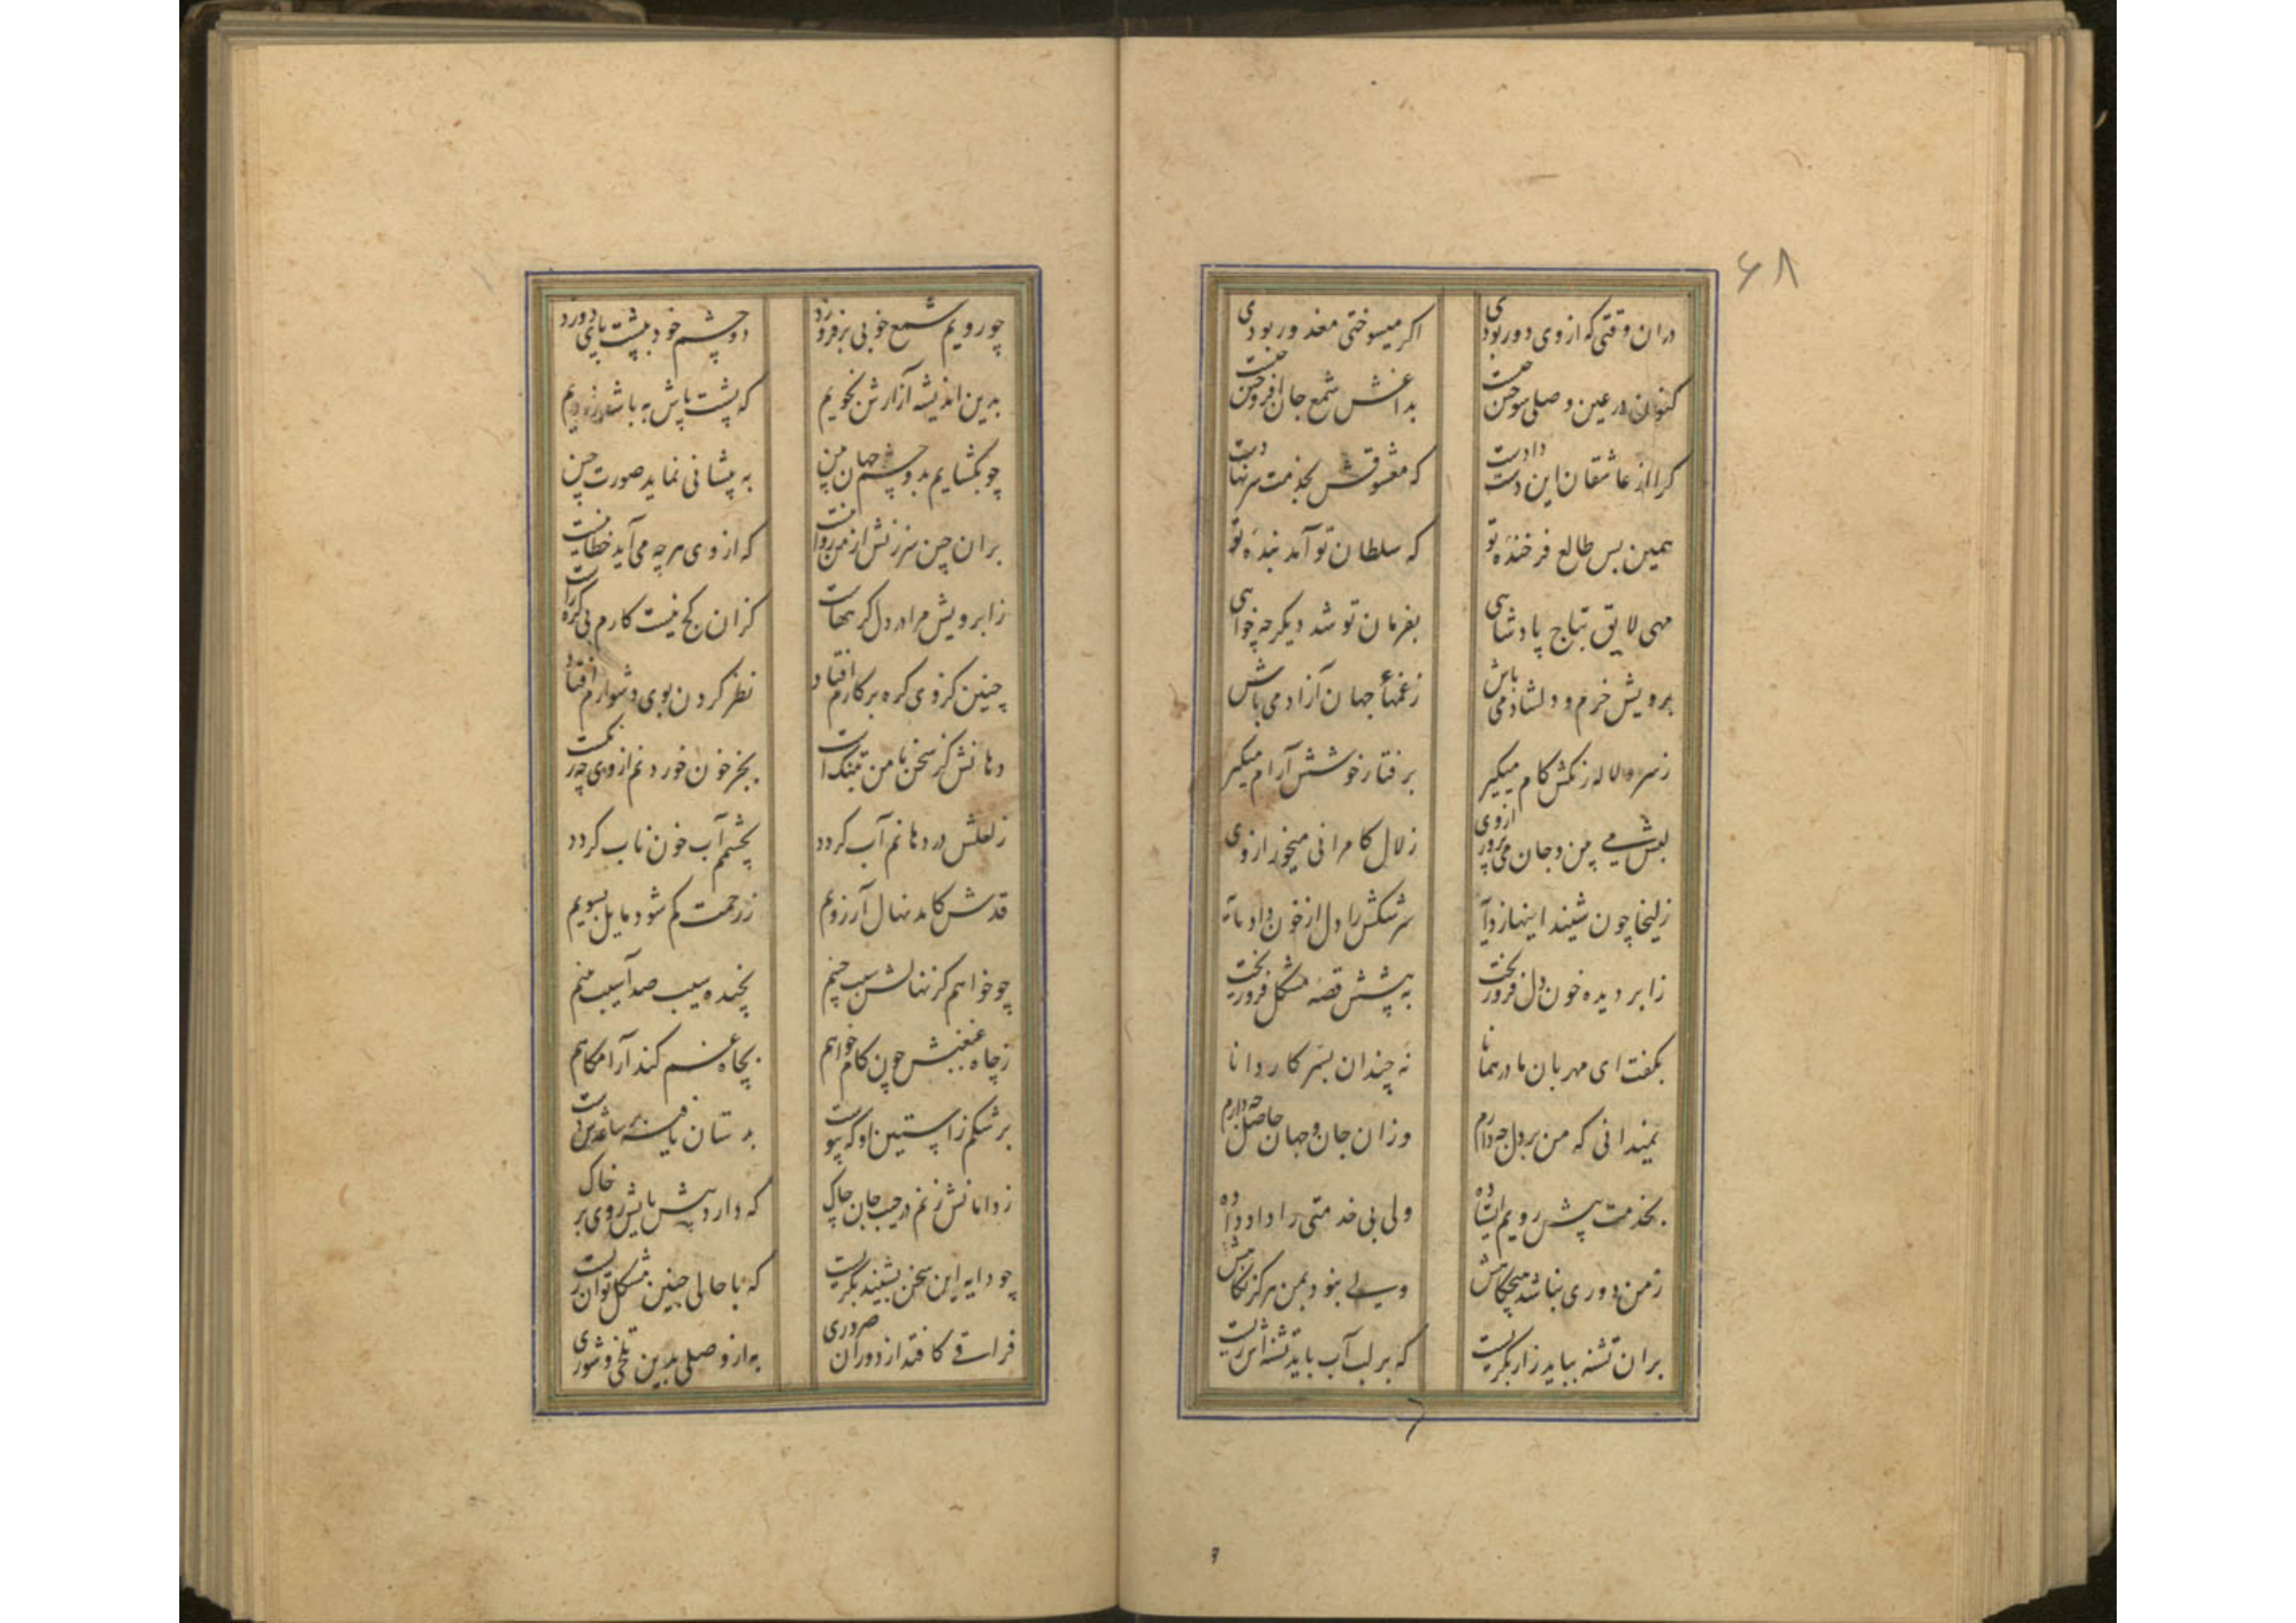 ۶۸
دران وقتی که ازوی دور بودی اکر میسوختی معذور بودی
کنون در عین وصلی سوختن چیست بداغش شمع جان افروختن چیست
کرا از عاشقان این دست دادست که معشوقش بخدمت سر نهادست
همین بس طالع فرخنده تو که سلطان تو آمد بنده تو
مهی لایق بتاج پادشاهی بفرمان تو شد دیگر چه خواهی
برویش خرم و دلشاد می باش زغمهاء جهان آزاد می باش
زسرو لاله رنکش کام میکیر برفتار خوشش آرام میکیر
لبش می بین و جان می پرور ازوی زلال کامرانی میخور ازوی
زلیخا چون شنید اینها ز دایه سرشکش را دل از خون داد مایه
ز ابر دیده خون دل فرو ریخت به پیشش قصه مشکل فرو ریخت
بکفت ای مهربان مادر همانا نه چندان بسر کار دانا
نمیدانی که من بر دل چه دارم وزان جان و جهان حاصل چه دارم
بخدمت پیش رویم ایستاده ولی بی خدمتی را داد داده
زمن دوری نباشد هیچکاهش ولی نبود بمن هرکز نکاهش
بران تشنه بباید زار بکریست که بر لب آب باید تشنه اش زیست
چو رویم شمع خوبی برفروزد دو چشم خود به پشت پای دوزد
بدین اندیشه آزارش نجویم که پشت پاش به باشد ز رویم
چو بکشایم بدو چشم جهان بین به پیشانی نماید صورت چین
بران چین سرزنش از من روا نیست که از وی هرچه می آید خطا نیست
ز ابرویش مرا در دل کرهاست کزان کج نیست کارم بی کره راست
چنین کز وی کره بر کارم افتاد نظر کردن بوی دشوارم افتاد
دهانش کز سخن با من بتنکست بجز خون خوردنم از وی چه رنکست
ز لعلش در دهانم آب کردد بچشمم آب خون ناب کردد
قدش کامد نهال آرزویم ز رحمت کم شود مایل بسویم
چو خواهم کز نهالش سیب چینم نچیده سیب صد آسیب بینم
ز چاه غبغبش چون کام خواهم بچاه غم کند آرامکاهم
برشکم ز آستین او که پیوست بدستان یافته بر ساعدش دست
ز دامانش زنم در جیب جان چاک که دارد پیش پایش روی بر خاک
چو دایه این سخن بشنید بکریست که با حالی چنین مشکل توان زیست
فراقی کافتد از دوران ضروری به از وصلی بدین تلخی و شوری